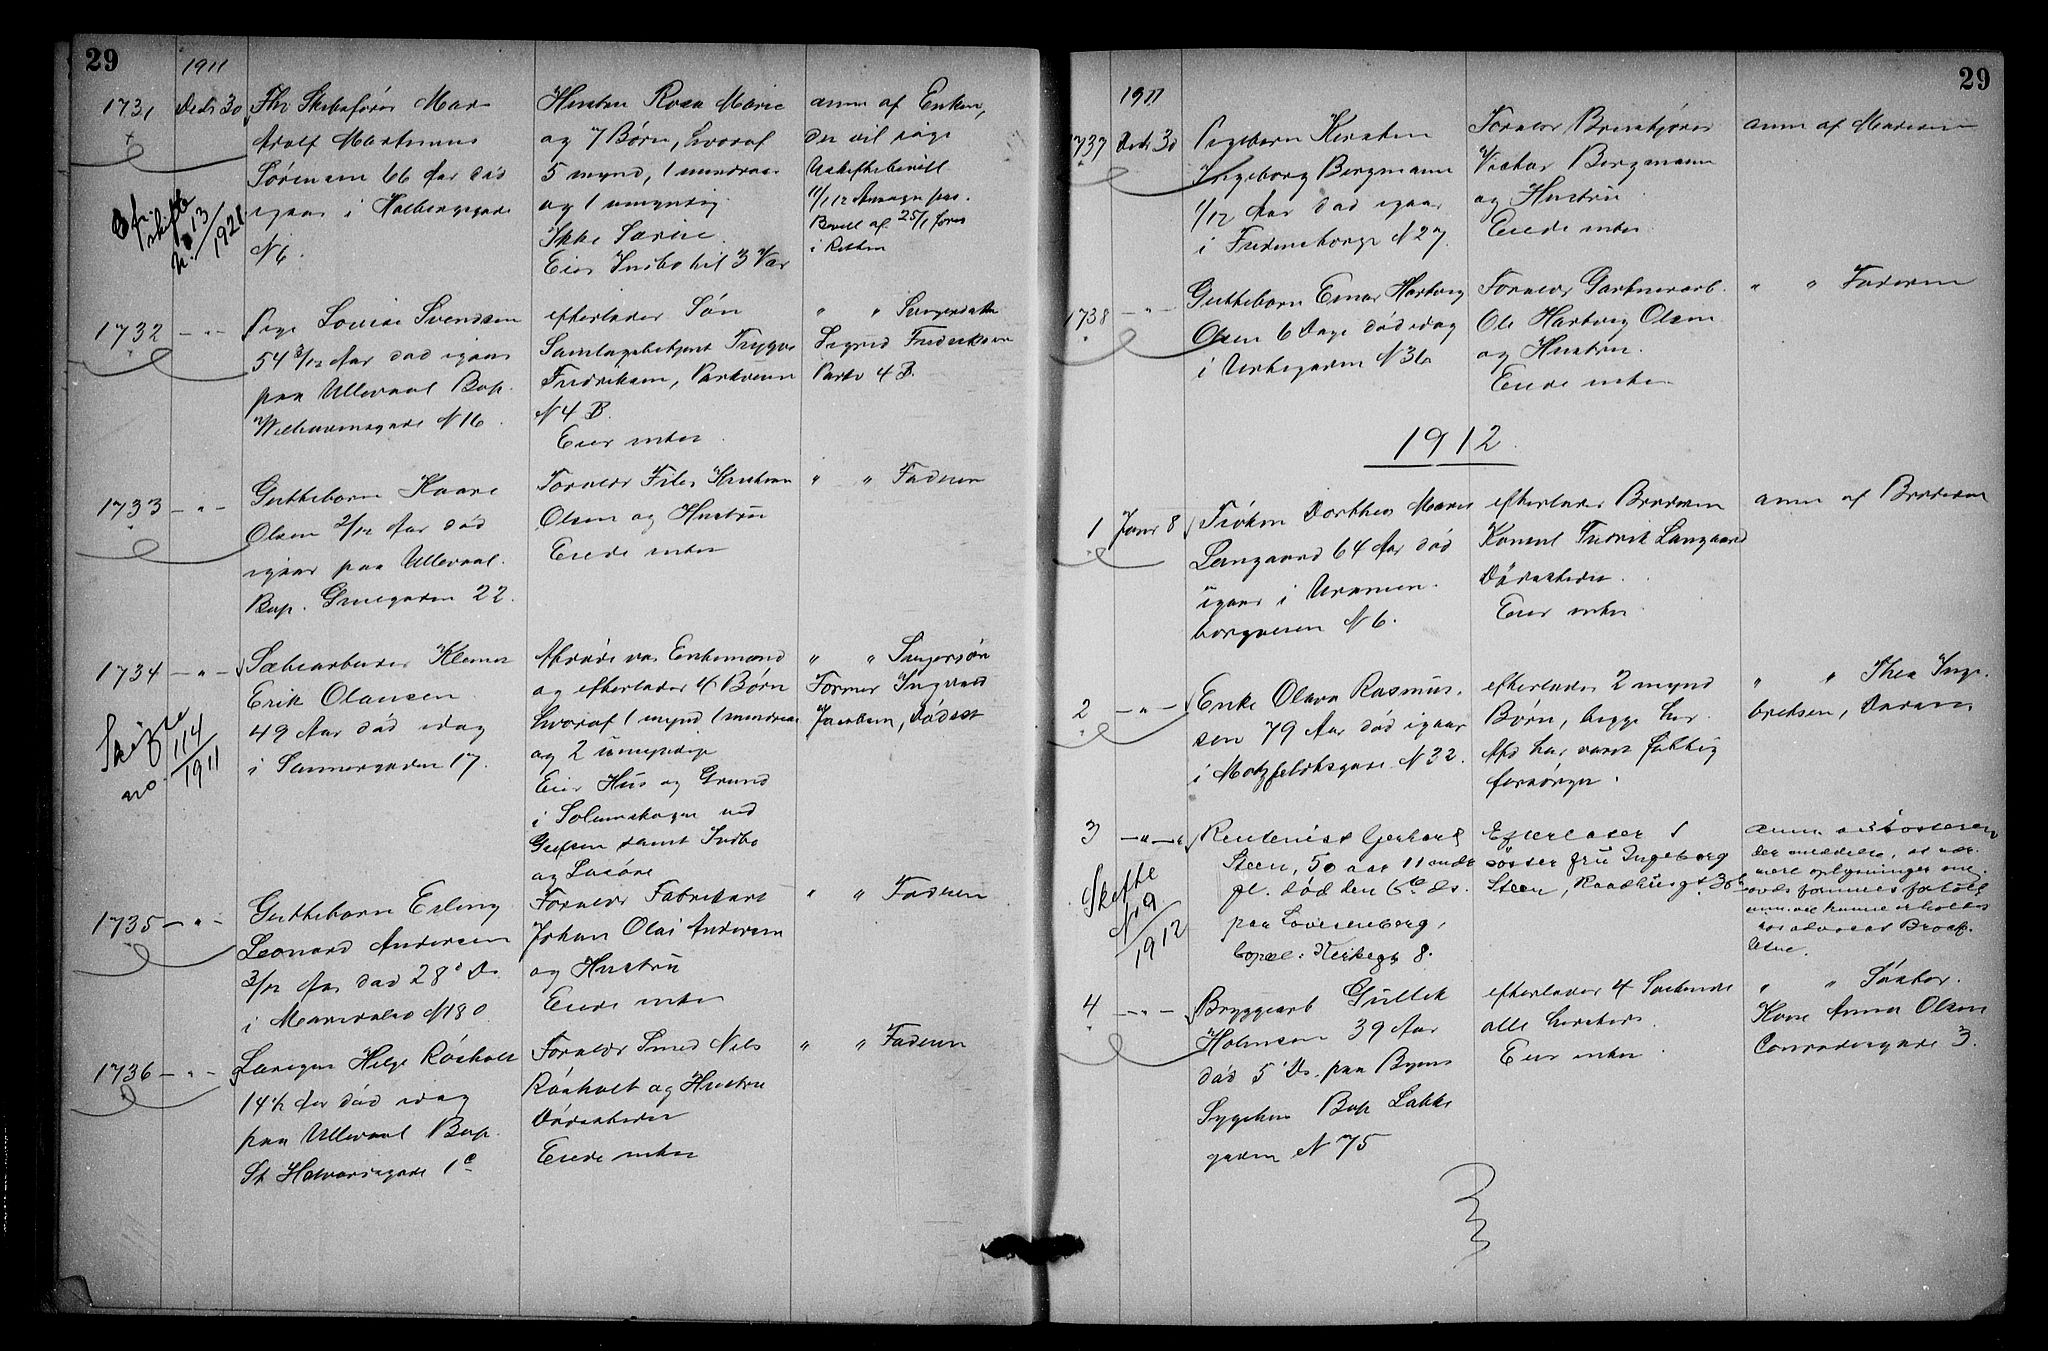 29
1911
1731 Decbr 30 Fhv Skibsfører Max
Adolf Martinus
Sørensen 66 Aar død
igaar i Holbergsgade
N 6.
Hustru Rosa Marie
og 7 Børn, hvoraf
5 mynd, 1 mindreaar
og 1 umyndig
Ikke Særeie
Eier Indbo til 3 Vær
anm af Enken,
der vil søge
Uskiftebevill
i Retten
skifte
13/1921
1732 - " - Pige Lovise Svendsen
54 3/12 Aar død igaar
paa Ullevaal Bop.
Welhavensgade N 16.
efterlader Søn
Samlagsbetjent Trygve
Fredriksen, Parkveien
N 4 B.
Eier intet.
" " Svigerdatter
Sigrid Fredriksen
Parkv 4 B.
1733 - " - Guttebarn Kaare
Olsen 2/12 Aar død
igaar paa Ullevaal.
Bop. Gruegaden 22.
Forældr Filer Kristian
Olsen og Hustru
Eiede intet
" " Faderen
1734 - " - Sæbearbeider Klemet
Erik Olausen
49 Aar død idag
i Sannergaden 17.
Afdøde var Enkemand
og efterlader 4 Børn
hvoraf 1 mynd 1 mindreaar
og 2 umyndige
Eier Hus og Grund
i Solemskogen ved
Grefsen samt Indbo
og Løsøre
" " Svigersøn
Former Ingvald
Jacobsen, Dødsst
Skifte
no 114/1911
1735 - " - Guttebarn Erling
Leonard Andersen
3/12 Aar død 28' Ds
i Maridalsv N 180
Forældr Fabrikarb
Johan Olai Andersen
og Hustru
Eiede intet
" " Faderen
1736 - " - Læregut Helge Røsholt
14 1/2 Aar død idag
paa Ullevaal Bop.
St Halvardsgade 1 c
Forældr Smed Nils
Røsholt og Hustru
Dødsstedet
Eiede intet
" " Faderen
29
1911
1737 Decbr 30 Pigebarn Kirsten
Ingeborg Bergmann
1/12 Aar død igaar
i Fredensborgv N 27.
Forældr
Victor Bergmann
og Hustru
Eiede intet.
anm af Moderen
1738 - " - Guttebarn Einar Hartvig
Olsen 6 Dage død idag
i N 36
Forældr Gartnerarb.
Ole Hartvig Olsen
og Hustru.
Eiede intet
" " Faderen
1912.
1 Janr 8 Frøken Dorthea Marie
Langaard 64 Aar død
igaar i Uranien-
borgveien N 6.
efterlader Broderen
Konsul Fredrik Langaard
Dødsstedet.
Eier intet.
anm af Broderen
2 - " - Enke Olava Rasmus-
sen 79 Aar død igaar
i Motzfeldtsgade N 32.
efterlader 2 mynd
Børn, begge her.
Afd har været fattig
forsørget.
" " Thea Inge-
bretsen, Datter
3 - " - Rentenist Gerhard
Steen, 50 aar 11 mndr
gl. død den 6te ds.
paa Lovisenberg,
bopæl: Kirkegt 8.
Efterlader 1
søster fru Ingeborg
Steen, Raadhusgt 30
anm af søsteren
der meddelte, at nær-
mere oplysninger
hos advocat
Skifte
No 9/1912
4 - " - Bryggearb Gullik
Holmsen 39 Aar
død 5' Ds. paa Byens
Sygehus Bop Lakke
gaden N 75
efterlader 4 Søskende
alle hersteds.
Eier intet.
" " Søster.
Kone Anna Olsen
Conradisgade 3.